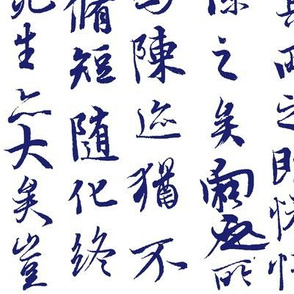 其所之既惓
係之矣向之所
為陳迹猶不
脩短隨化終
死生亦大矣豈